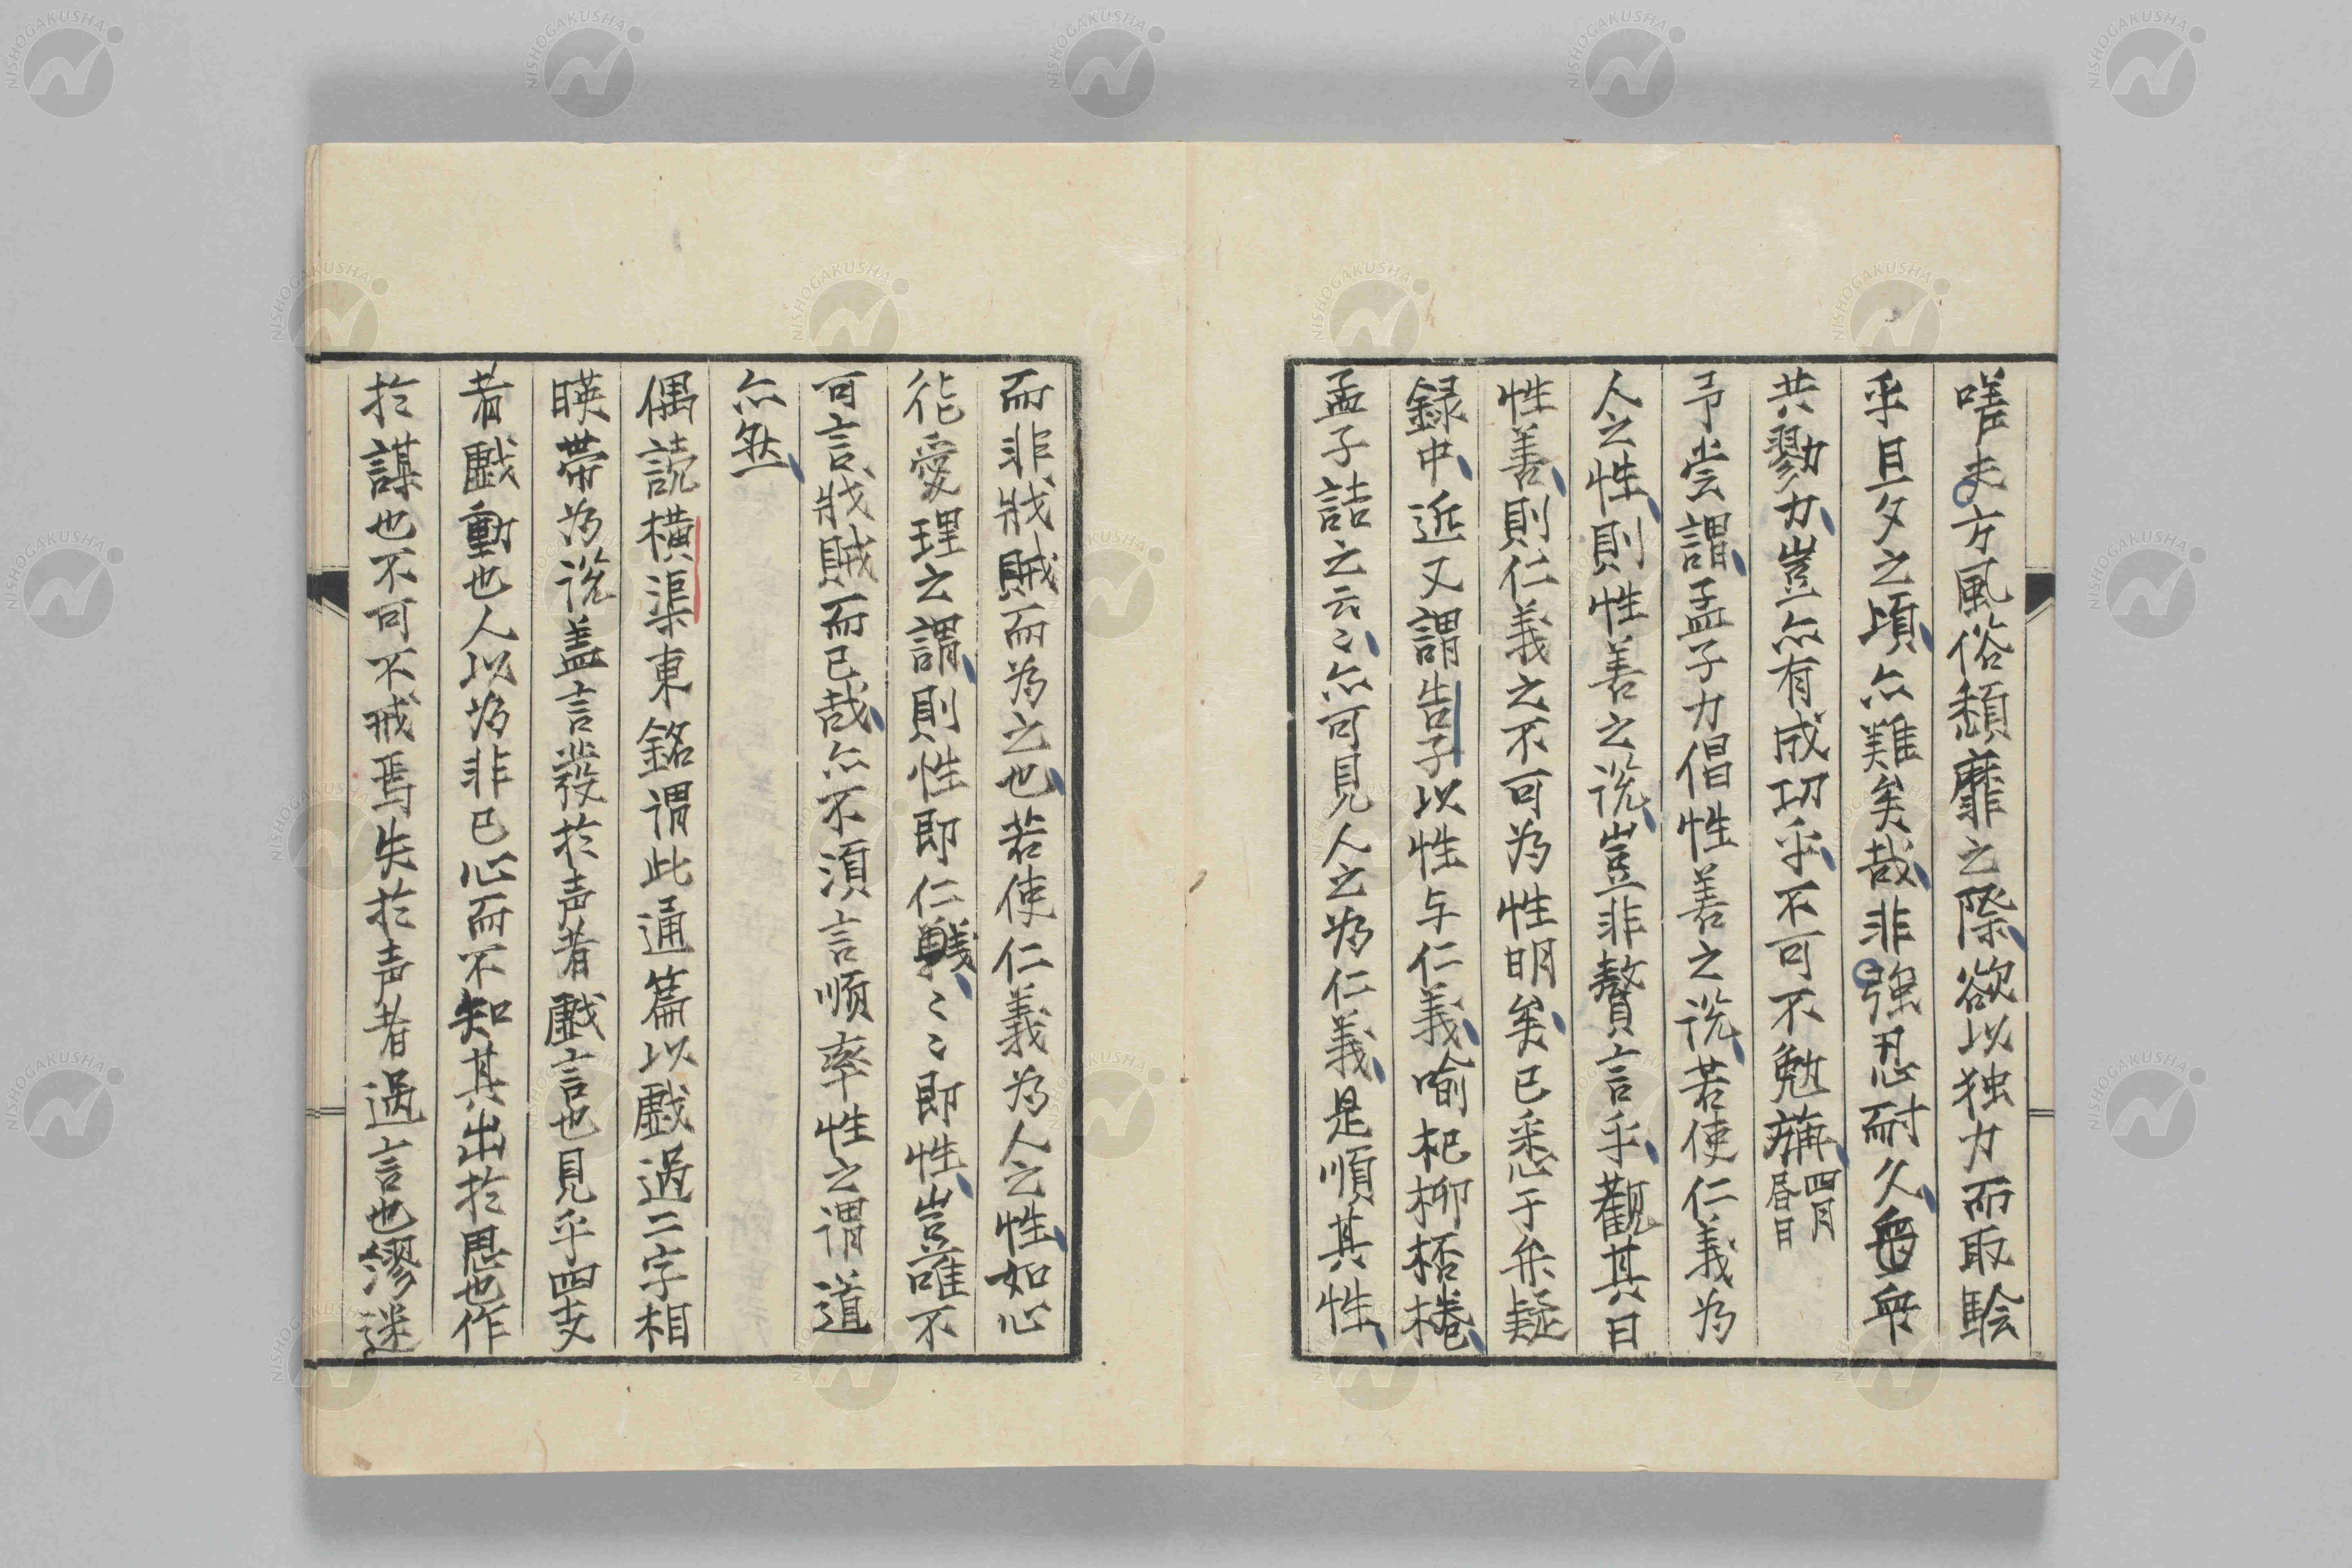 嗟夫方風俗頽靡之際欲以独力而取驗
乎旦夕之頃亦難矣哉非強忍耐久
共勠力豈亦有成功乎不可不勉旃四月
昏日
予嘗謂孟子力倡性善之說若使仁義為
人之性則性善之說豈非贅言乎観其曰
性善則仁義之不可為性明矣已悉于弁疑
録中近又謂告子以性与仁義喻杞柳桮棬
孟子詰之云〻亦可見人之為仁義是順其性
而非戕賊而為之也若使仁義為人之性如心
能愛理之謂則性即仁義〻〻即性豈誰不
可言戕賊而已哉亦不須言順率性之謂道
亦然
偶読横渠東銘謂此通篇以戯過二字相
暎帯為說盖言發於声者戯言也見乎四支
者戯動也人以為非己心而不知其出於思也作
於謀也不可不戒焉失於声者過言也謬迷